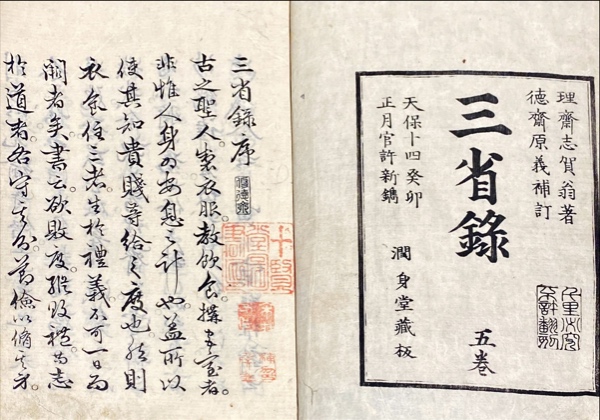 理齋志賀翁著
德齋原義補訂
三省錄
五卷
天保十四癸卯
正月官許新鐫
潤身堂藏板
三省錄序
古之聖人製衣服教飲食搆宮室者
非惟人身為安息之計也蓋所以
使其知貴賤等給之度也然則
衣食住三者生於禮義不可一日而
闕者矣書云欲敗度縱敗禮尚志
於道者各守其分節儉以脩其身